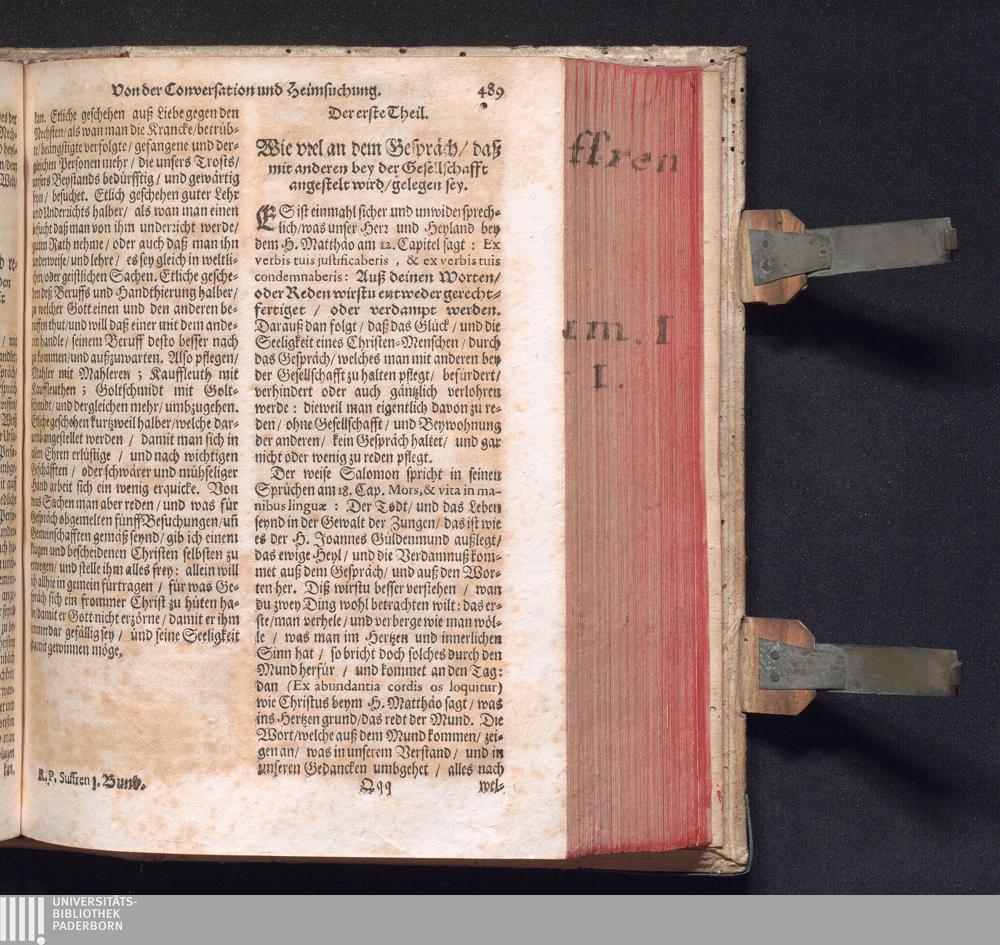 Von der Conversation und Heimsuchung. 489
kan. Etliche geschehen auß Liebe gegen den
Nechsten/ als wan man die Krancke/ betrüb-
te/ beängstigte verfolgte/ gefangene und der-
gleichen Personen mehr / die unsers Trosts/
unsers Beystands bedürfftig/ und gewärtig
seyn/ besuchet. Etlich geschehen guter Lehr
und Underzichts halber/ als wan man einen
besucht daß man von ihm underzicht werde/
guten Rath nehme/ oder auch daß man ihn
underweise/ und lehre/ es sey gleich in weltli-
chen/ oder geistlichen Sachen. Etliche gesche-
hen deß Beruffs und Handthierung halber/
zu welcher Gott einen und den anderen be-
ruffen thut/ und will daß einer mit dem ande-
ren handle/ seinem Beruff desto besser nach
zu kommen/ und außzuwarten. Also pflegen/
Mahler mit Mahleren ; Kauffleuth mit
Kauffleuthen ; Goltschmidt mit Golt-
schmidt/ und dergleichen mehr/ umbzugehen.
Etliche geschehen kurtzweil halber/ welche dar-
umb angestellet werden / damit man sich in
allen Ehren erlüstige / und nach wichtigen
Geschäfften / oder schwärer und mühseliger
Hand arbeit sich ein wenig erquicke. Von
was Sachen man aber reden/ und was für
Gespräch obgemelten fünff Besuchungen/ uñ
Gemeinschafften gemäß seynd/ gib ich einem
klugen und bescheidenen Christen selbsten zu
erwegen/ und stelle ihm alles frey: allein will
ich allhie in gemein fürtragen / für was Ge-
spräch sich ein frommer Christ zu hüten ha-
be/ damit er Gott nicht erzörne/ damit er ihm
immerdar gefällig sey / und seine Seeligkeit
darmit gewinnen möge.
R. P. Suffren 1. Bund.
Der erste Theil.
Wie vil an dem Gespräch/ daß
mit anderen bey der Gesellschafft
angestelt wird/ gelegen sey.
ES ist einmahl sicher und unwidersprech-
lich/ was unser Herz und Heyland bey
dem H. Matthäo am 12. Capitel sagt : Ex
verbis tuis justificaberis , & ex verbis tuis
condemnaberis: Auß deinen Worten/
oder Reden wirstu entweder gerecht-
fertiget / oder verdampt werden.
Darauß dan folgt/ daß das Glück/ und die
Seeligkeit eines Christen-Menschen/ durch
das Gespräch/ welches man mit anderen bey
der Gesellschafft zu halten pflegt/ befürdert/
verhindert oder auch gäntzlich verlohren
werde : dieweil man eigentlich davon zu re-
den/ ohne Gesellschafft/ und Beywohnung
der anderen/ kein Gespräch haltet/ und gar
nicht oder wenig zu reden pflegt.
Der weise Salomon spricht in seinen
Sprüchen am 18. Cap. Mors, & vita in ma-
nibus linguæ : Der Todt/ und das Leben
seynd in der Gewalt der Zungen/ das ist wie
es der H. Joannes Güldenmund außlegt/
das ewige Heyl/ und die Verdamnuß kom-
met auß dem Gespräch/ und auß den Wor-
ten her. Diß wirstu besser verstehen / wan
du zwey Ding wohl betrachten wilt: das er-
ste/ man verhele/ und verberge wie man wöl-
le / was man im Hertzen und innerlichen
Sinn hat / so bricht doch solches durch den
Mund herfür / und kommet an den Tag:
dan (Ex abundantia cordis os loquitur)
wie Christus beym H. Matthäo sagt/ was
ins Hertzen grund/ das redt der Mund. Die
Wort/ welche auß dem Mund kommen/ zei-
gen an/ was in unserem Verstand/ und in
unseren Gedancken umbgehet / alles nach
Qqq wel-
ffren
m. I
I.
UNIVERSITÄTS-
BIBLIOTHEK
PADERBORN